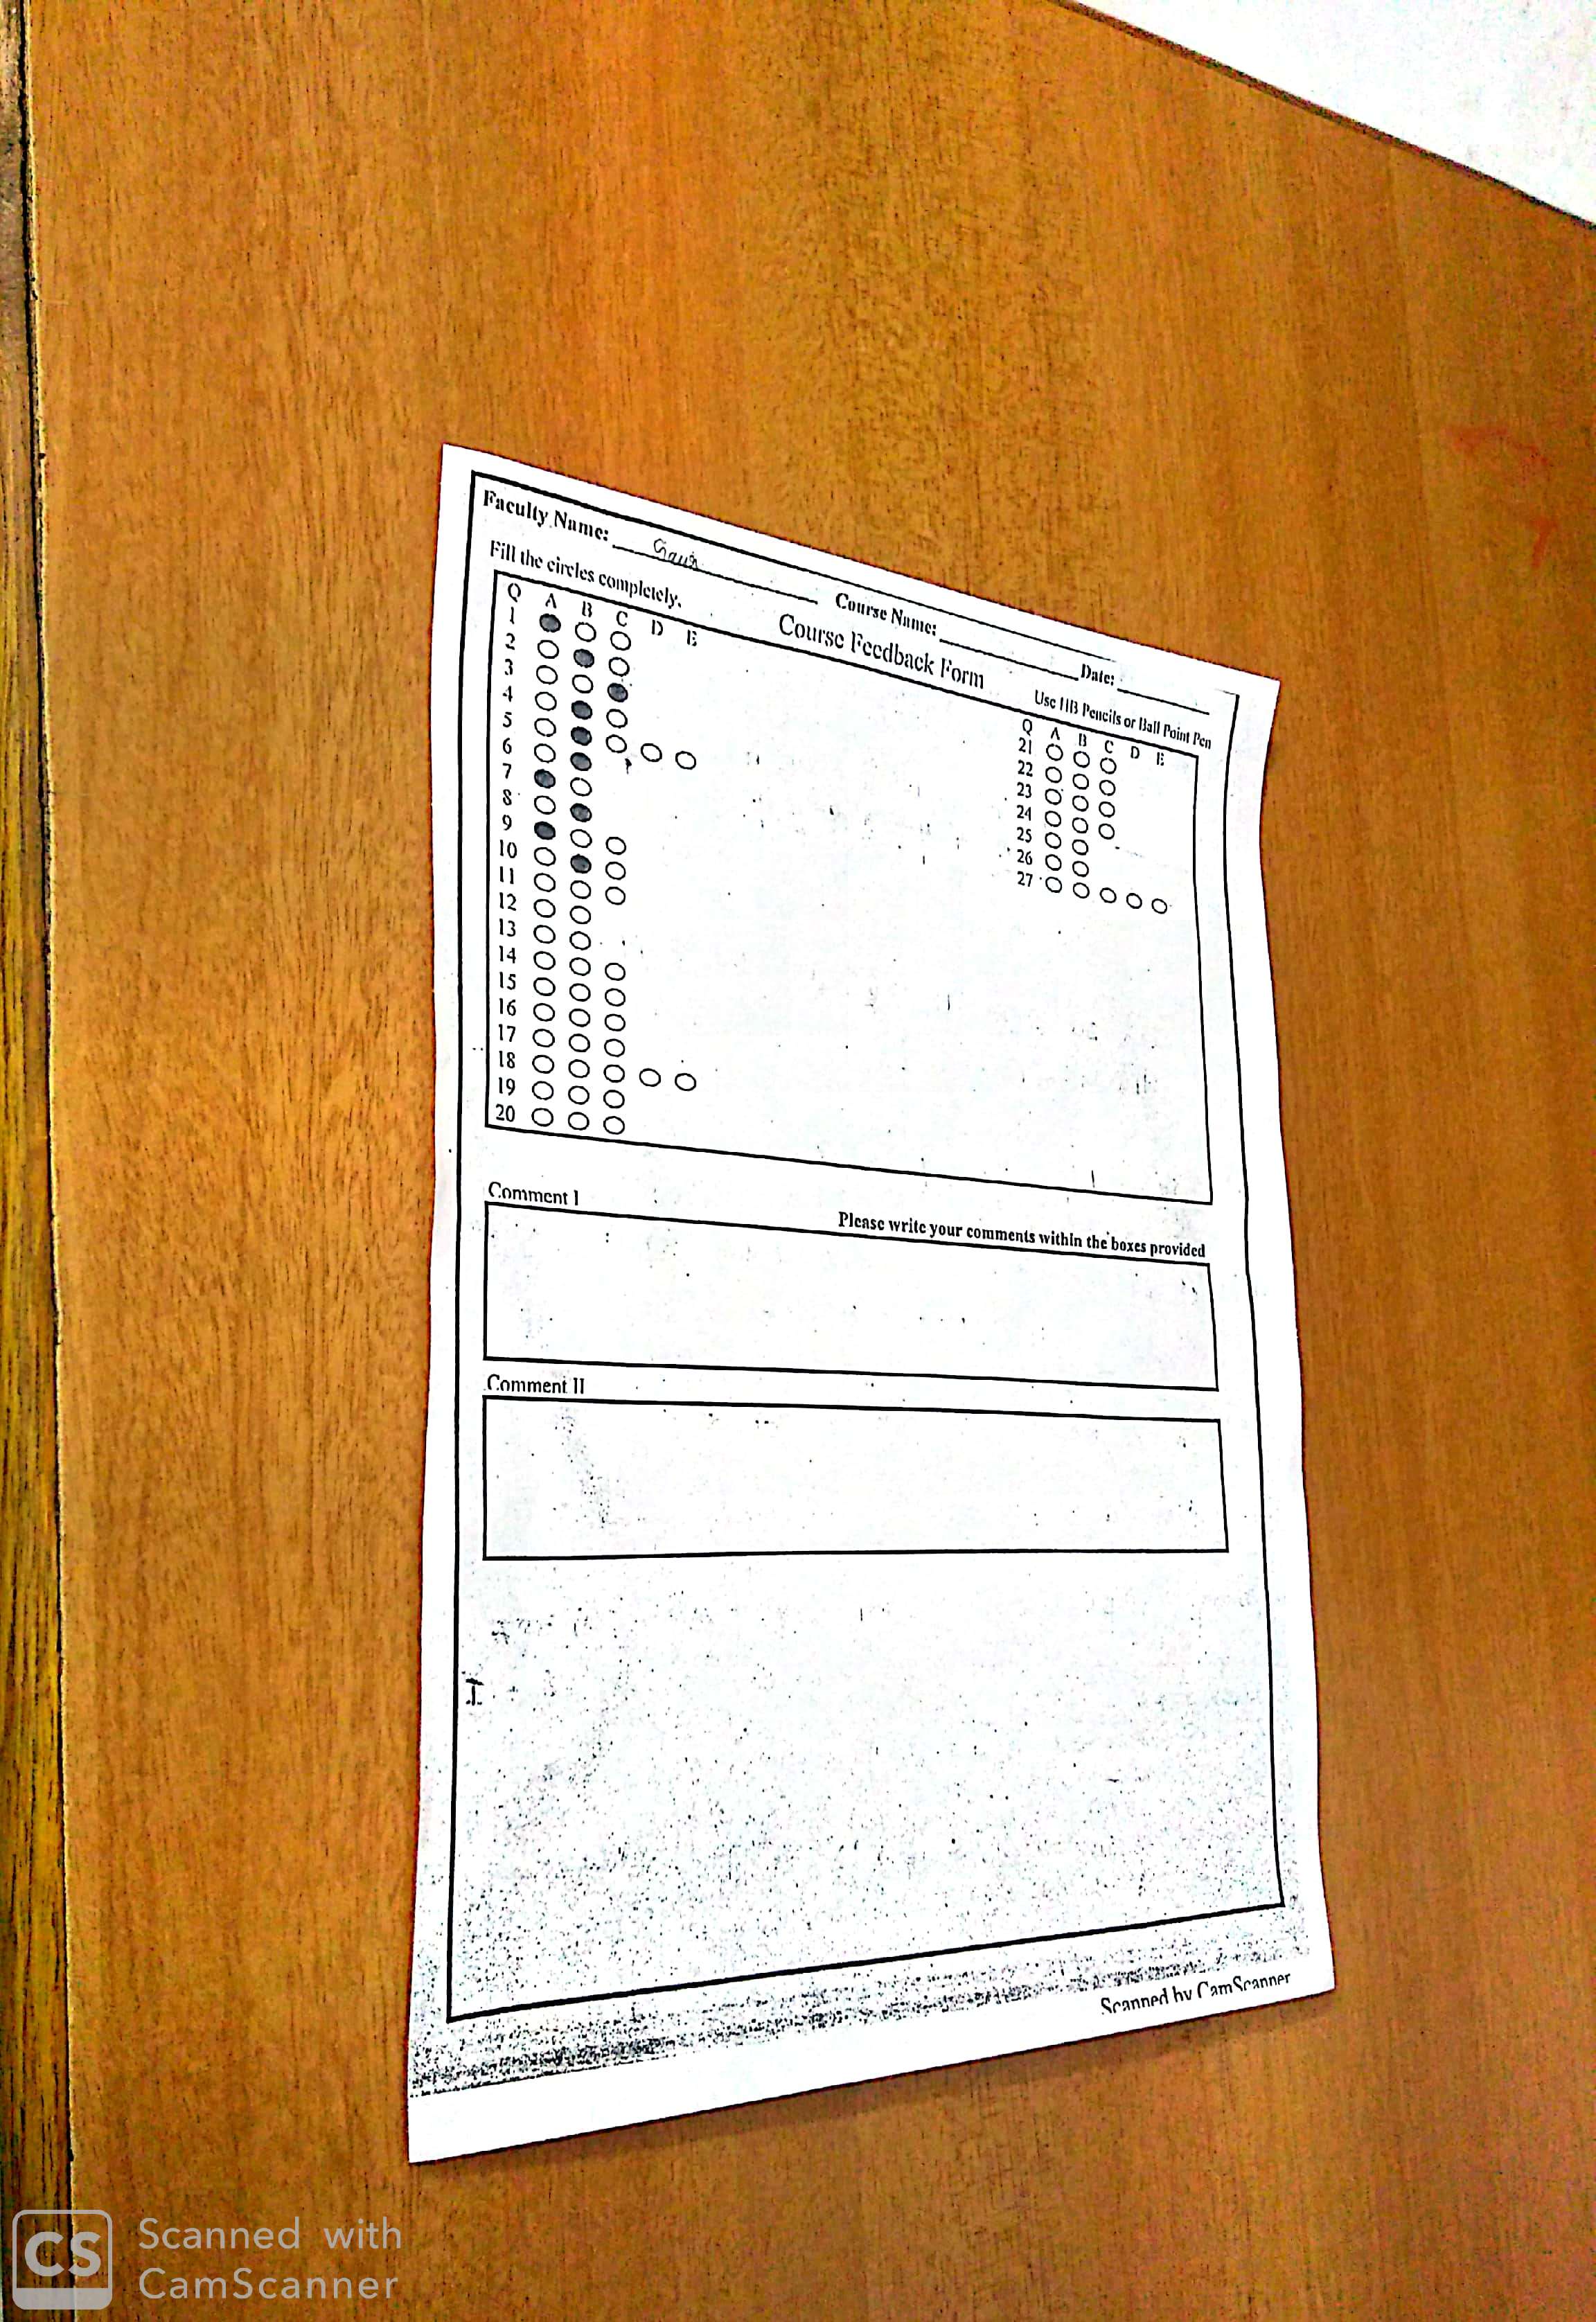 Faculty Name: Course Name: Date:
Course Feedback Form
Fill the circles completely. Use HB Pencils or Ball Point Pen
Q A B C D E
1
2
3
4
5
6
7
8
9
10
11
12
13
14
15
16
17
18
19
20
Q A B C D E
21
22
23
24
25
26
27
Comment I
Please write your comments within the boxes provided
Comment II
Scanned by CamScanner
CS
Scanned with
CamScanner